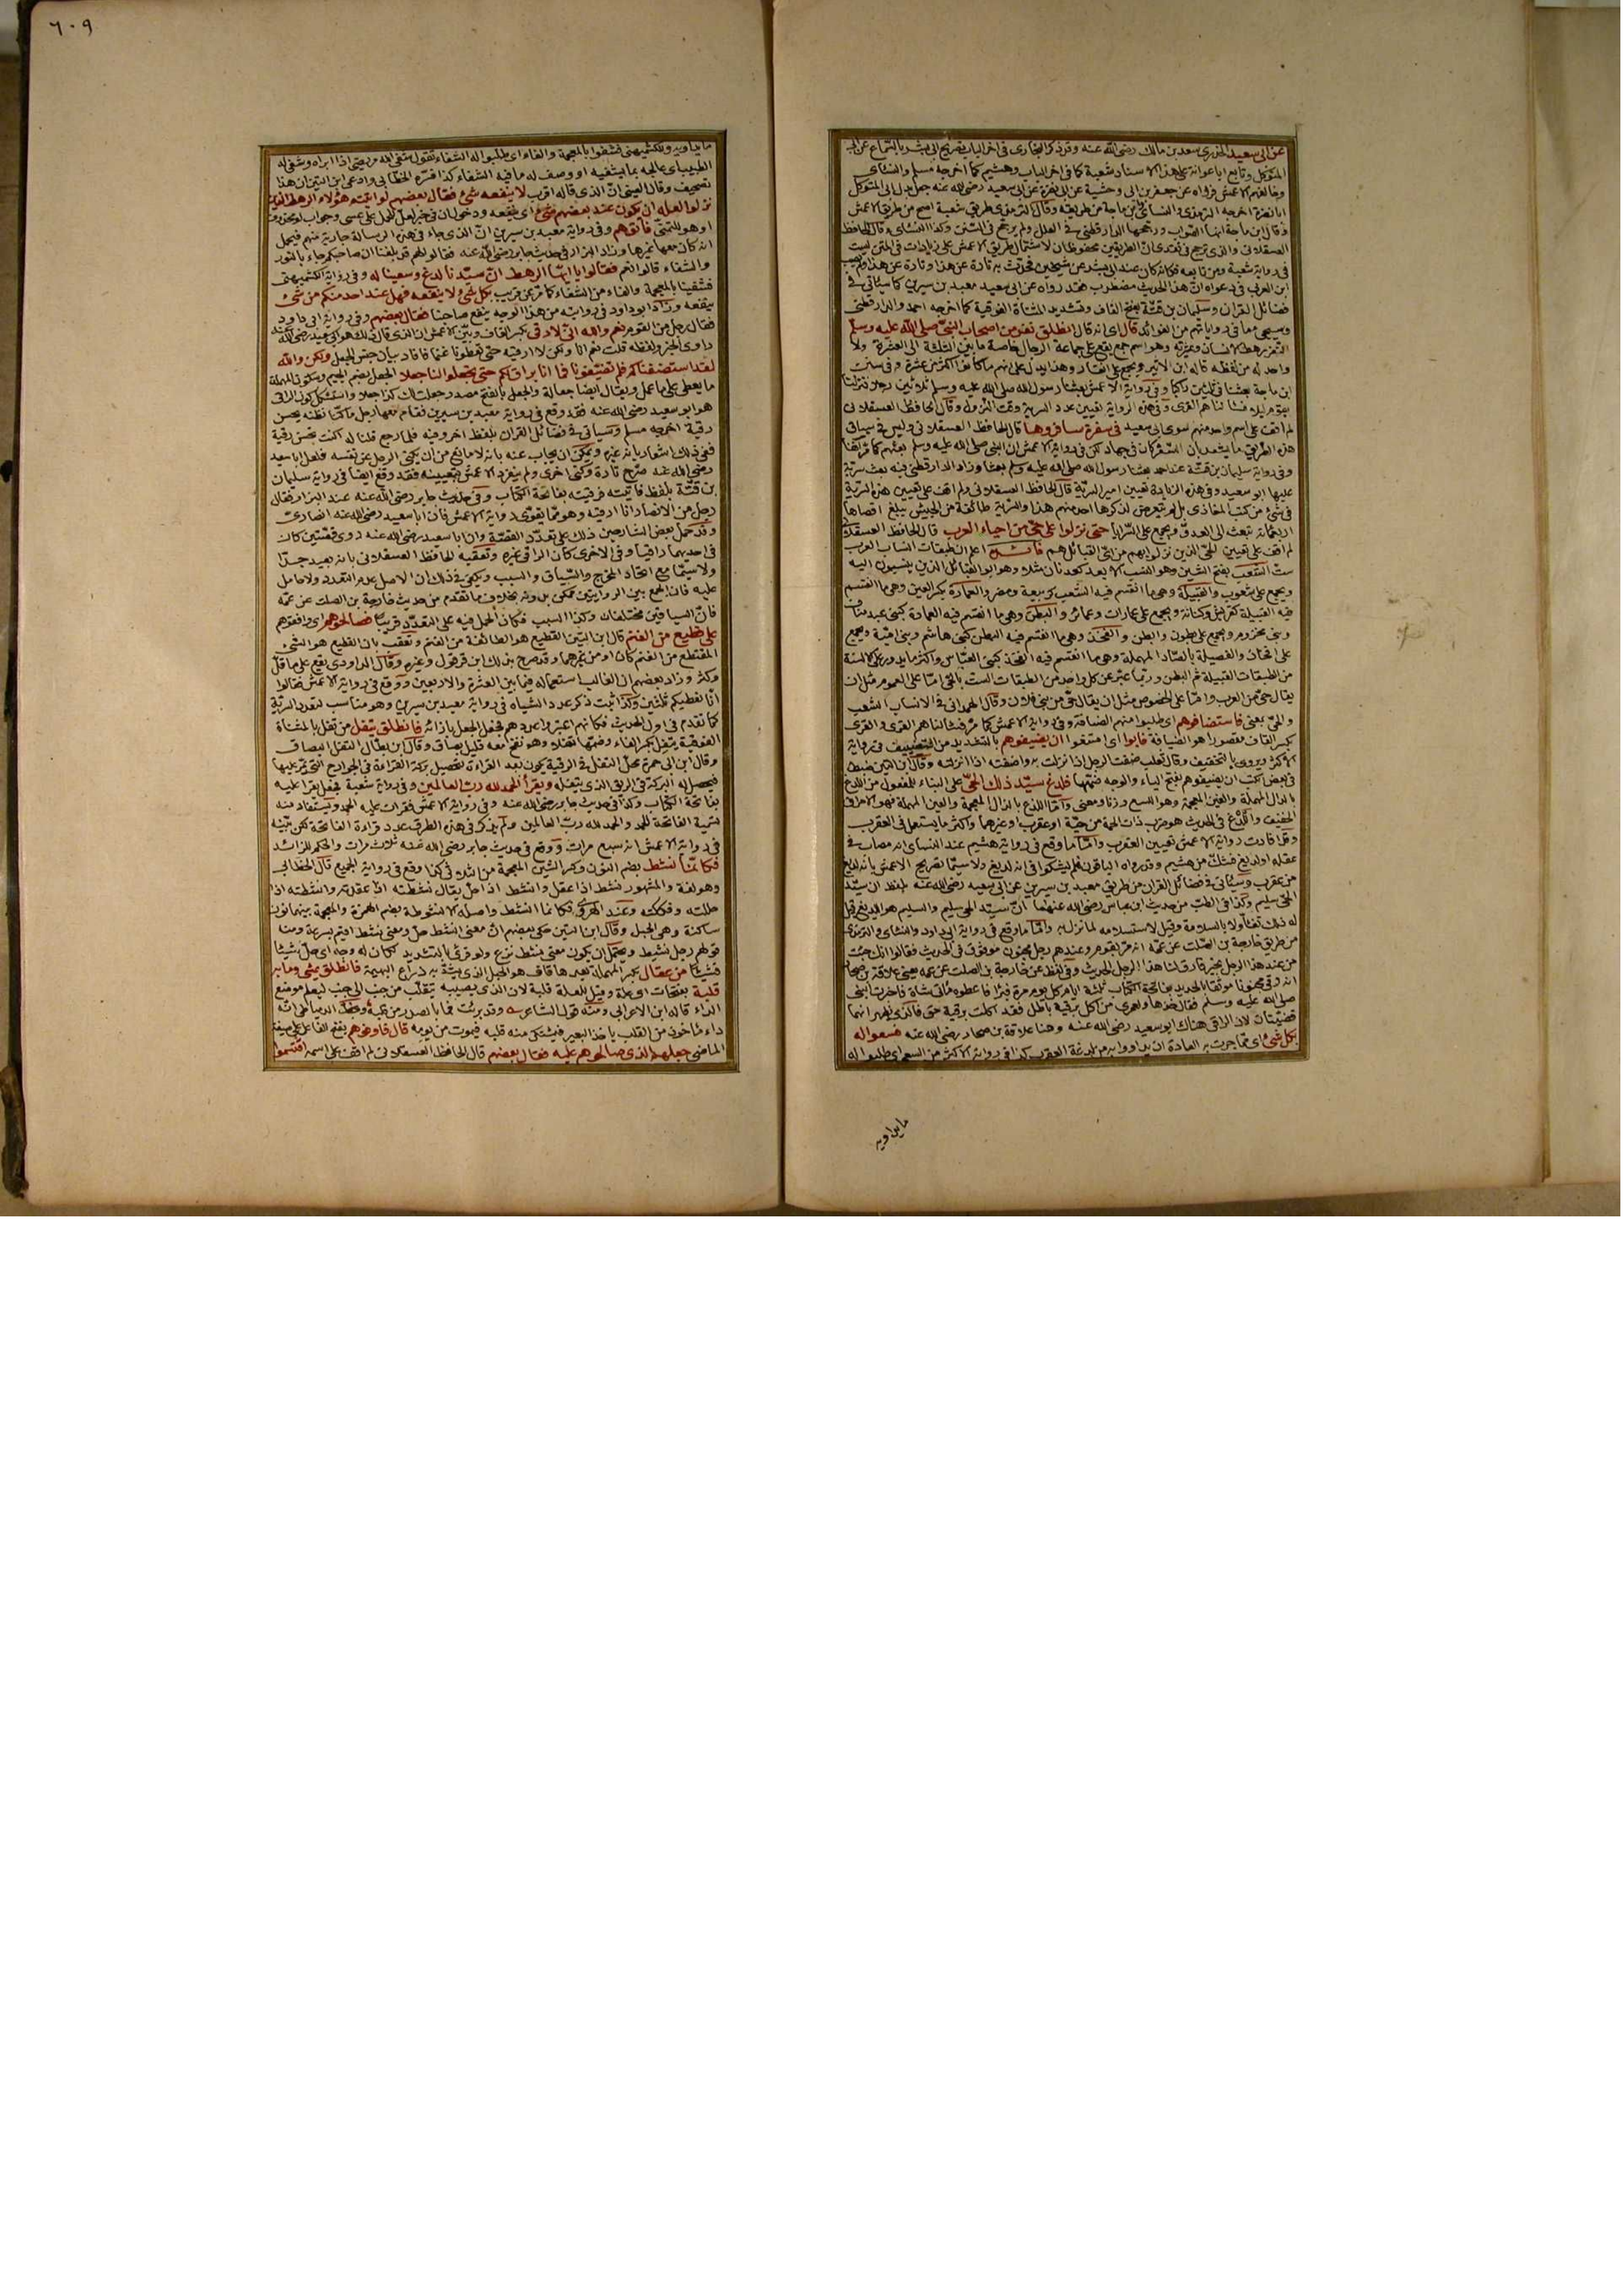 ٦٠٩
عن ابى سعيد الخدرى سعد بن مالك رضى الله عنه وقد ذكر البخارى فى اخر الباب تصريح ابى بشر بالسماع عن ابى
المتوكل وتابع ابا عوانة على هذا الاسناد شعبة كما فى اخر الباب وهشيم كما اخرجه مسلم والنسائى
وخالفهم الاعمش فرواه عن جعفر بن ابى وحشية عن ابى نضرة عن ابى سعيد رضى الله عنه جعل بدل ابى المتوكل
ابا نضرة اخرجه الترمذى والنسائى وابن ماجة من طريقه وقال الترمذى طريق شعبة اصح من طريق الاعمش
وقال ابن ماجة انها الصواب ورجحها الدارقطنى فى العلل ولم يرجح فى السنن وكذا النسائى وقال الحافظ
العسقلانى والذى ترجح فى نقدى ان الطريقين محفوظان لاشتمال طريق الاعمش على زيادات فى المتن ليست
فى رواية شعبة ومن تابعه فكانه كان عند ابى بشر عن شيخين فحدث به تارة عن هذا وتارة عن هذا ولم يصب
ابن العربى فى دعواه ان هذا الحديث مضطرب فقد رواه عن ابى سعيد معبد بن سيرين كما سيأتى فى
فضائل القران وسليمان بن قتة بفتح القاف وتشديد المثناة الفوقية كما اخرجه احمد والدارقطنى
وسيجئ ما فى رواياتهم من الفوائد قال اى انه قال انطلق نفر من اصحاب النبى صلى الله عليه وسلم
النفر رهط الانسان وعشيرته وهو اسم جمع يقع على جماعة الرجال خاصة ما بين الثلثة الى العشرة ولا
واحد له من لفظه قاله ابن الاثير ويجمع على انفار وهذا يدل على انهم ما كانوا اكثر من عشرة وفى سنن
ابن ماجة بعثنا فى ثلثين راكبا وفى رواية الاعمش بعثنا رسول الله صلى الله عليه وسلم ثلاثين رجلا فنزلنا
بقوم ليلا فسألناهم القرى وفى هذه الرواية تعيين عدد السرية ووقت النزول وقال الحافظ العسقلانى
لم اقف على اسم واحد منهم سوى ابى سعيد فى سفرة سافروها قال الحافظ العسقلانى وليس فى سياق
هذه الطريق ما يشعر بأن السفر كان فى جهاد لكن فى رواية الاعمش ان النبى صلى الله عليه وسلم بعثهم كما مر انفا
وفى رواية سليمان بن قتة عند احمد بعثنا رسول الله صلى الله عليه وسلم بعثا وزاد الدارقطنى فيه بعث سرية
عليها ابو سعيد وفى هذه الزيادة تعيين امير السرية قال الحافظ العسقلانى ولم اقف على تعيين هذه السرية
فى شئ من كتب المغازى بل لم يتعرض لذكرها احد منهم هذا والسرية طائفة من الجيش يبلغ اقصاها
اربعمائة تبعث الى العدو ويجمع على السرايا حتى نزلوا على حى من احياء العرب قال الحافظ العسقلانى
لم اقف على تعيين الحى الذين نزلوا بهم من اى القبائل هم فائدة اعلم ان طبقات انساب العرب
ست الشعب بفتح الشين وهو النسب الابعد كعدنان مثلا وهو ابو القبائل الذين ينسبون اليه
ويجمع على شعوب والقبيلة وهى ما انقسم فيه الشعب كربيعة ومضر والعمارة بكسر العين وهى ما انقسم
فيه القبيلة كقريش وكنانة ويجمع على عمارات وعمائر والبطن وهى ما انقسم فيه العمارة كبنى عبد مناف
وبنى مخزوم ويجمع على بطون وابطن والفخذ وهى ما انقسم فيه البطن كبنى هاشم وبنى امية ويجمع
على افخاذ والفصيلة بالصاد المهملة وهى ما انقسم فيه الفخذ كبنى العباس واكثر ما يدور على الالسنة
من الطبقات القبيلة ثم البطن وربما عبر عن كل واحد من الطبقات الست بالحى اما على العموم مثل ان
يقال حى من العرب واما على الخصوص مثل ان يقال حى من بنى فلان وقال الهمدانى فى الانساب الشعب
والحى بمعنى فاستضافوهم اى طلبوا منهم الضيافة وفى رواية الاعمش كما مر فسألناهم القرى والقرى
بكسر القاف مقصورا هو الضيافة فابوا اى امتنعوا ان يضيفوهم بالتشديد من التضييف فى رواية
الاكثر ويروى بالتخفيف وقال ثعلب ضفت الرجل اذا نزلت به واضفته اذا انزلته وقال ابن التين ضبط
فى بعض الكتب ان يضيفوهم بفتح الياء والوجه ضمها فلدغ سيد ذلك الحى على البناء للمفعول من اللدغ
بالدال المهملة والغين المعجمة وهو اللسع وزنا ومعنى واما اللذع بالذال المعجمة والعين المهملة فهو الاحراق
الخفيف واللدغ فى الحديث هو ضرب ذات الحمة من حية او عقرب او غيرهما واكثر ما يستعمل فى العقرب
وقد افادت رواية الاعمش تعيين العقرب واما ما وقع فى رواية هشيم عند النسائى انه مصاب فى
عقله او لديغ فشك من هشيم وقد رواه الباقون فلم يشكوا فى انه لديغ ولا سيما تصريح الاعمش بانه لدغ
من عقرب وسيأتى فى فضائل القران من طريق معبد بن سيرين عن ابى سعيد رضى الله عنه بلفظ ان سيد
الحى سليم وكذا فى الطب من حديث ابن عباس رضى الله عنهما ان سيد الحى سليم والسليم هو اللديغ وقيل
له ذلك تفاؤلا بالسلامة وقيل لاستسلامه لما نزل به واما ما وقع فى رواية ابى داود والنسائى والترمذى
من طريق خارجة بن الصلت عن عمه انه مر بقوم وعندهم رجل مجنون موثوق فى الحديث فقالوا انك جئت
من عند هذا الرجل بخير فارق لنا هذا الرجل الحديث وفى لفظ عن خارجة بن الصلت عن عمه يعنى علاقة بن صحار
انه رقى مجنونا موثقا بالحديد بفاتحة الكتاب ثلثة ايام كل يوم مرة فبرأ فاعطوه مائتى شاة فاخبرت النبى
صلى الله عليه وسلم فقال خذها ولعمرى من اكل برقية باطل فقد اكلت برقية حق فالذى يظهر انهما
قضيتان لان الراقى هناك ابو سعيد رضى الله عنه وهنا علاقة بن صحار رضى الله عنه فسعوا له
بكل شئ اى مما جرت به العادة ان يداووا به من لدغة العقرب كذا فى رواية الاكثر من السعى اى طلبوا له
ما يداويه
ما يداويه وللكشميهنى فشفوا بالمعجمة والفاء اى طلبوا له الشفاء تقول شفى الله مريضى اذا ابراه وشفى له
الطبيب اى عالجه بما يشفيه او وصف له ما فيه الشفاء كذا فسره الخطابى وادعى ابن التين ان هذا
تصحيف وقال العينى ان الذى قاله اقرب لا ينفعه شئ فقال بعضهم لو اتيتم هؤلاء الرهط الذين
نزلوا لعله ان يكون عند بعضهم شئ اى ينفعه ودخول ان فى خبر لعل للحمل على عسى وجواب لو محذوف
او هو للتمنى فاتوهم وفى رواية معبد بن سيرين ان الذى جاء فى هذه الرسالة جارية منهم فيحمل
انه كان معها غيرها وزاد البزار فى حديث جابر رضى الله عنه فقالوا لهم قد بلغنا ان صاحبكم جاء بالنور
والشفاء قالوا نعم فقالوا يا ايها الرهط ان سيدنا لدغ وسعينا له وفى رواية الكشميهنى
فشفينا بالمعجمة والفاء من الشفاء كما مر عن قريب بكل شئ لا ينفعه فهل عند احد منكم من شئ
ينفعه وزاد ابو داود فى روايته من هذا الوجه ينفع صاحبنا فقال بعضهم وفى رواية ابى داود
فقال رجل من القوم نعم والله انى لارقى بكسر القاف وبين الاعمش ان الذى قال ذلك هو ابو سعيد رضى الله عنه
راوى الخبر ولفظه قلت نعم انا ولكن لا ارقيه حتى تعطونا غنما فافاد بيان جنس الجعل ولكن والله
لقد استضفناكم فلم تضيفونا فما انا براق لكم حتى تجعلوا لنا جعلا الجعل بضم الجيم وسكون المهملة
ما يعطى على ما عمل ويقال ايضا جعالة والجعل بالفتح مصدر جعلت لك كذا جعلا واستشكل كون الراقى
هو ابو سعيد رضى الله عنه فقد وقع فى رواية معبد بن سيرين فقام معها رجل ما كنا نظنه يحسن
رقية اخرجه مسلم وسيأتى فى فضائل القران بلفظ اخر وفيه فلما رجع قلنا له اكنت تحسن رقية
ففى ذلك اشعار بانه غيره ويمكن ان يجاب عنه بانه لا مانع من ان يكنى الرجل عن نفسه فلعل ابا سعيد
رضى الله عنه صرح تارة وكنى اخرى ولم ينفرد الاعمش بتعيينه فقد وقع ايضا فى رواية سليمان
بن قتة بلفظ فاتيته فرقيته بفاتحة الكتاب وفى حديث جابر رضى الله عنه عند البزار فقال
رجل من الانصار انا ارقيه وهو مما يقوى رواية الاعمش فان ابا سعيد رضى الله عنه انصارى
وقد حمل بعض الشارحين ذلك على تعدد القصة وان ابا سعيد رضى الله عنه روى قصتين كان
فى احديهما راقيا وفى الاخرى كان الراقى غيره وتعقبه الحافظ العسقلانى بانه بعيد جدا
ولا سيما مع اتحاد المخرج والسياق والسبب ويكفى فى ذلك ان الاصل عدم التعدد ولا حامل
عليه فان الجمع بين الروايتين ممكن بدونه بخلاف ما تقدم من حديث خارجة بن الصلت عن عمه
فان السياقين مختلفان وكذا السبب فكان الحمل فيه على التعدد قريبا فصالحوهم اى وافقوهم
على قطيع من الغنم قال ابن التين القطيع هو الطائفة من الغنم وتعقب بان القطيع هو الشئ
المقتطع من الغنم كان او من غيرها وقد صرح بذلك ابن قرقول وغيره وقال الداودى يقع على ما قل
وكثر وزاد بعضهم ان الغالب استعماله فيما بين العشرة والاربعين ووقع فى رواية الاعمش فقالوا
انا نعطيكم ثلثين وكذا ثبت ذكر عدد الشياه فى رواية معبد بن سيرين وهو مناسب لعدد السرية
كما تقدم فى اول الحديث فكانهم اعتبروا عددهم فجعل الجعل بازائه فانطلق يتفل من تفل بالمثناة
الفوقية يتفل بكسر الفاء وضمها تفلا وهو نفخ معه قليل بصاق وقال ابن بطال التفل البصاق
وقال ابن ابى جمرة محل التفل فى الرقية يكون بعد القراءة لتحصيل بركة القراءة فى الجوارح التى يمر عليها
فيحصل له البركة فى الريق الذى يتفله ويقرأ الحمد لله رب العالمين وفى رواية شعبة فجعل يقرأ عليه
بفاتحة الكتاب وكذا فى حديث جابر رضى الله عنه وفى رواية الاعمش فقرأت عليه الحمد ويستفاد منه
تسمية الفاتحة الحمد والحمد لله رب العالمين ولم يذكر فى هذه الطرق عدد قراءة الفاتحة لكن بينه
فى رواية الاعمش انه سبع مرات ووقع فى حديث جابر رضى الله عنه ثلاث مرات والحكم للزائد
فكانما نشط بضم النون وكسر الشين المعجمة من الثلاثى كذا وقع فى رواية الجميع قال الخطابى
وهو لغة والمشهور نشط اذا عقل وانشط اذا حل يقال نشطته اذا عقدته وانشطته اذا
حللته وفككته وعند الهروى فكانما انشط واصله الانشوطة بضم الهمزة والمعجمة بينهما نون
ساكنة وهى الحبل وقال ابن التين حكى بعضهم ان معنى انشط حل ومعنى نشط اقيم بسرعة ومنه
قولهم رجل نشيط ويحتمل ان يكون معنى نشط نزع ولو قرئ بالتشديد لكان له وجه اى حل شيئا
فشيئا من عقال بكسر المهملة بعدها قاف هو الحبل الذى يشد به ذراع البهيمة فانطلق يمشى وما به
قلبة بفتحات اى علة وقيل للعلة قلبة لان الذى يصيبه يتقلب من جنب الى جنب ليعلم موضع
الداء قاله ابن الاعرابى ومنه قول الشاعر وقد برئت فما بالصدر من قلبة وحكى الدمياطى انه
داء مأخوذ من القلاب يأخذ البعير فيشتكى منه قلبه فيموت من يومه قال فاوفوهم بفتح الفاء على صيغة
الماضى جعلهم الذى صالحوهم عليه فقال بعضهم قال الحافظ العسقلانى لم اقف على اسمه اقتسموا